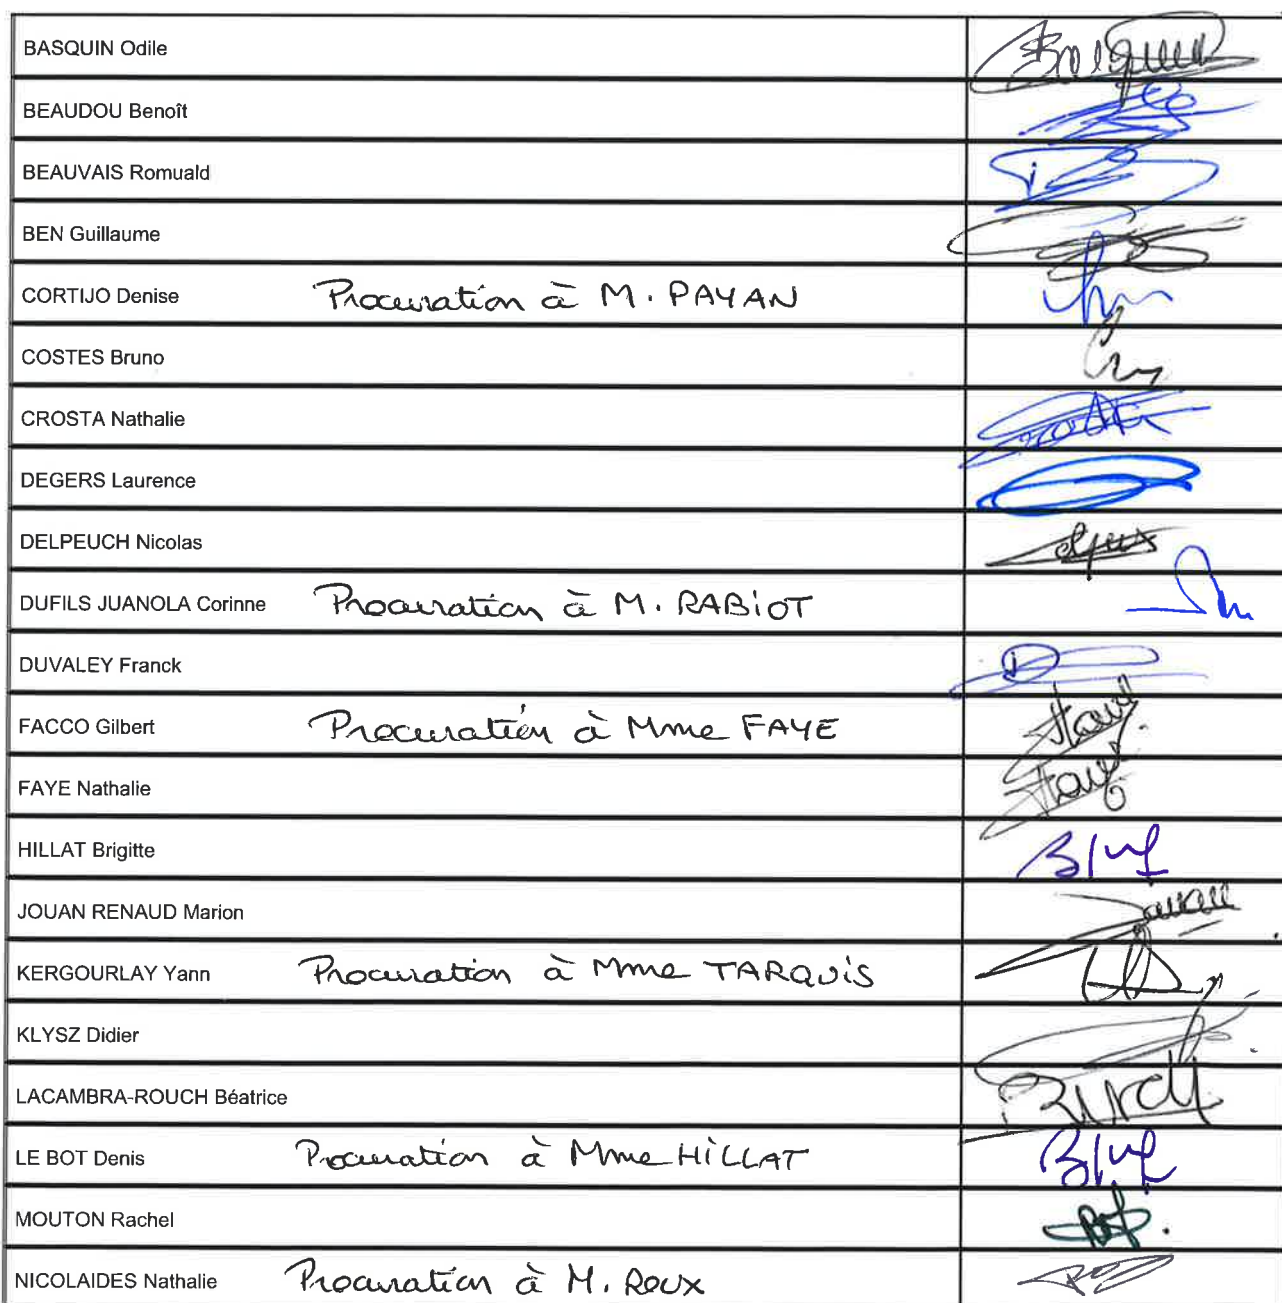 BASQUIN Odile
BEAUDOU Benoît
BEAUVAIS Romuald
BEN Guillaume
CORTIJO Denise Procuration à M. PAYAN
COSTES Bruno
CROSTA Nathalie
DEGERS Laurence
DELPEUCH Nicolas
DUFILS JUANOLA Corinne Procuration à M. RABIOT
DUVALEY Franck
FACCO Gilbert Procuration à Mme FAYE
FAYE Nathalie
HILLAT Brigitte
JOUAN RENAUD Marion
KERGOURLAY Yann Procuration à Mme TARQUIS
KLYSZ Didier
LACAMBRA-ROUCH Béatrice
LE BOT Denis Procuration à Mme HILLAT
MOUTON Rachel
NICOLAIDES Nathalie Procuration à M. Roux